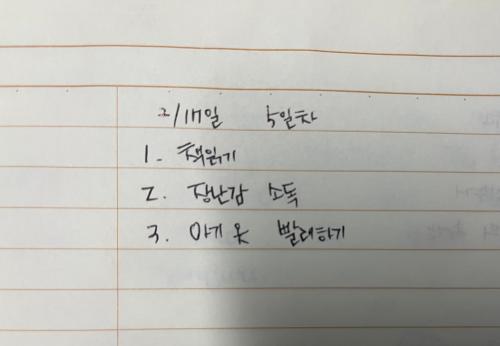 2/17일 5일차
1. 책읽기
2. 장난감 소독
3. 아기 옷 빨래하기